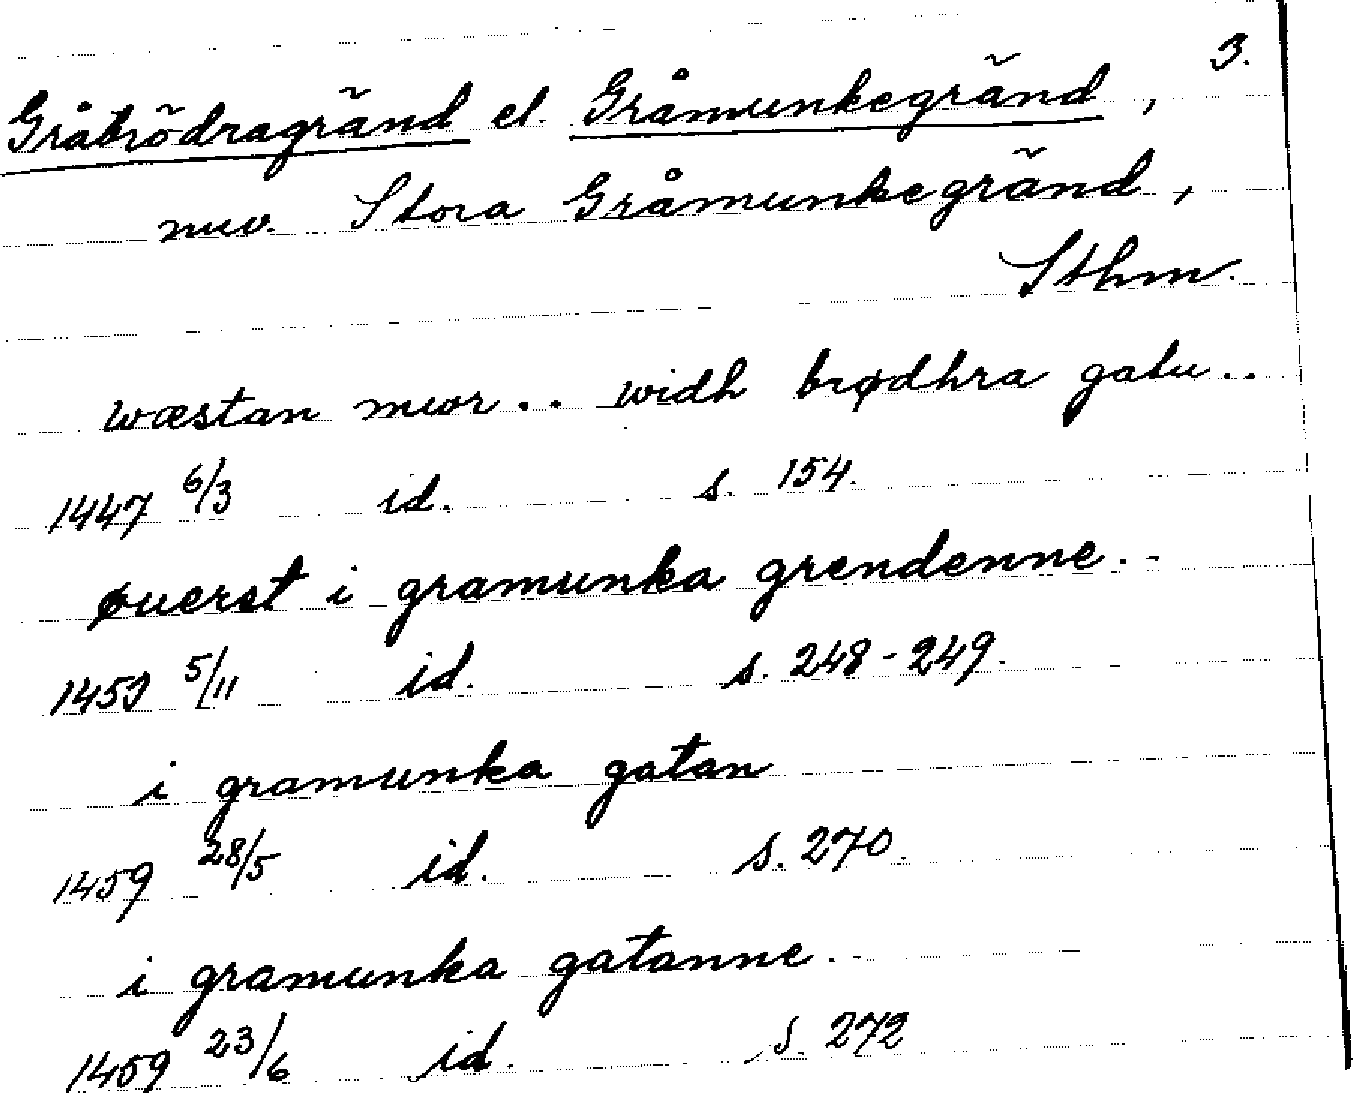 3.
Gråbrödragränd el. Gråmunkegränd,
nuv. Stora Gråmunkegränd,
Sthm.
wæstan mwr .. widh brødhra gatu ..
1447 6/3 id. s. 154.
øuerst i gramunka grendenne ..
1459 5/11 id. s. 248-249.
i gramunka gatan
1459 28/5 id. s. 270.
i gramunka gatanne.
1459 23/6 id. s. 272